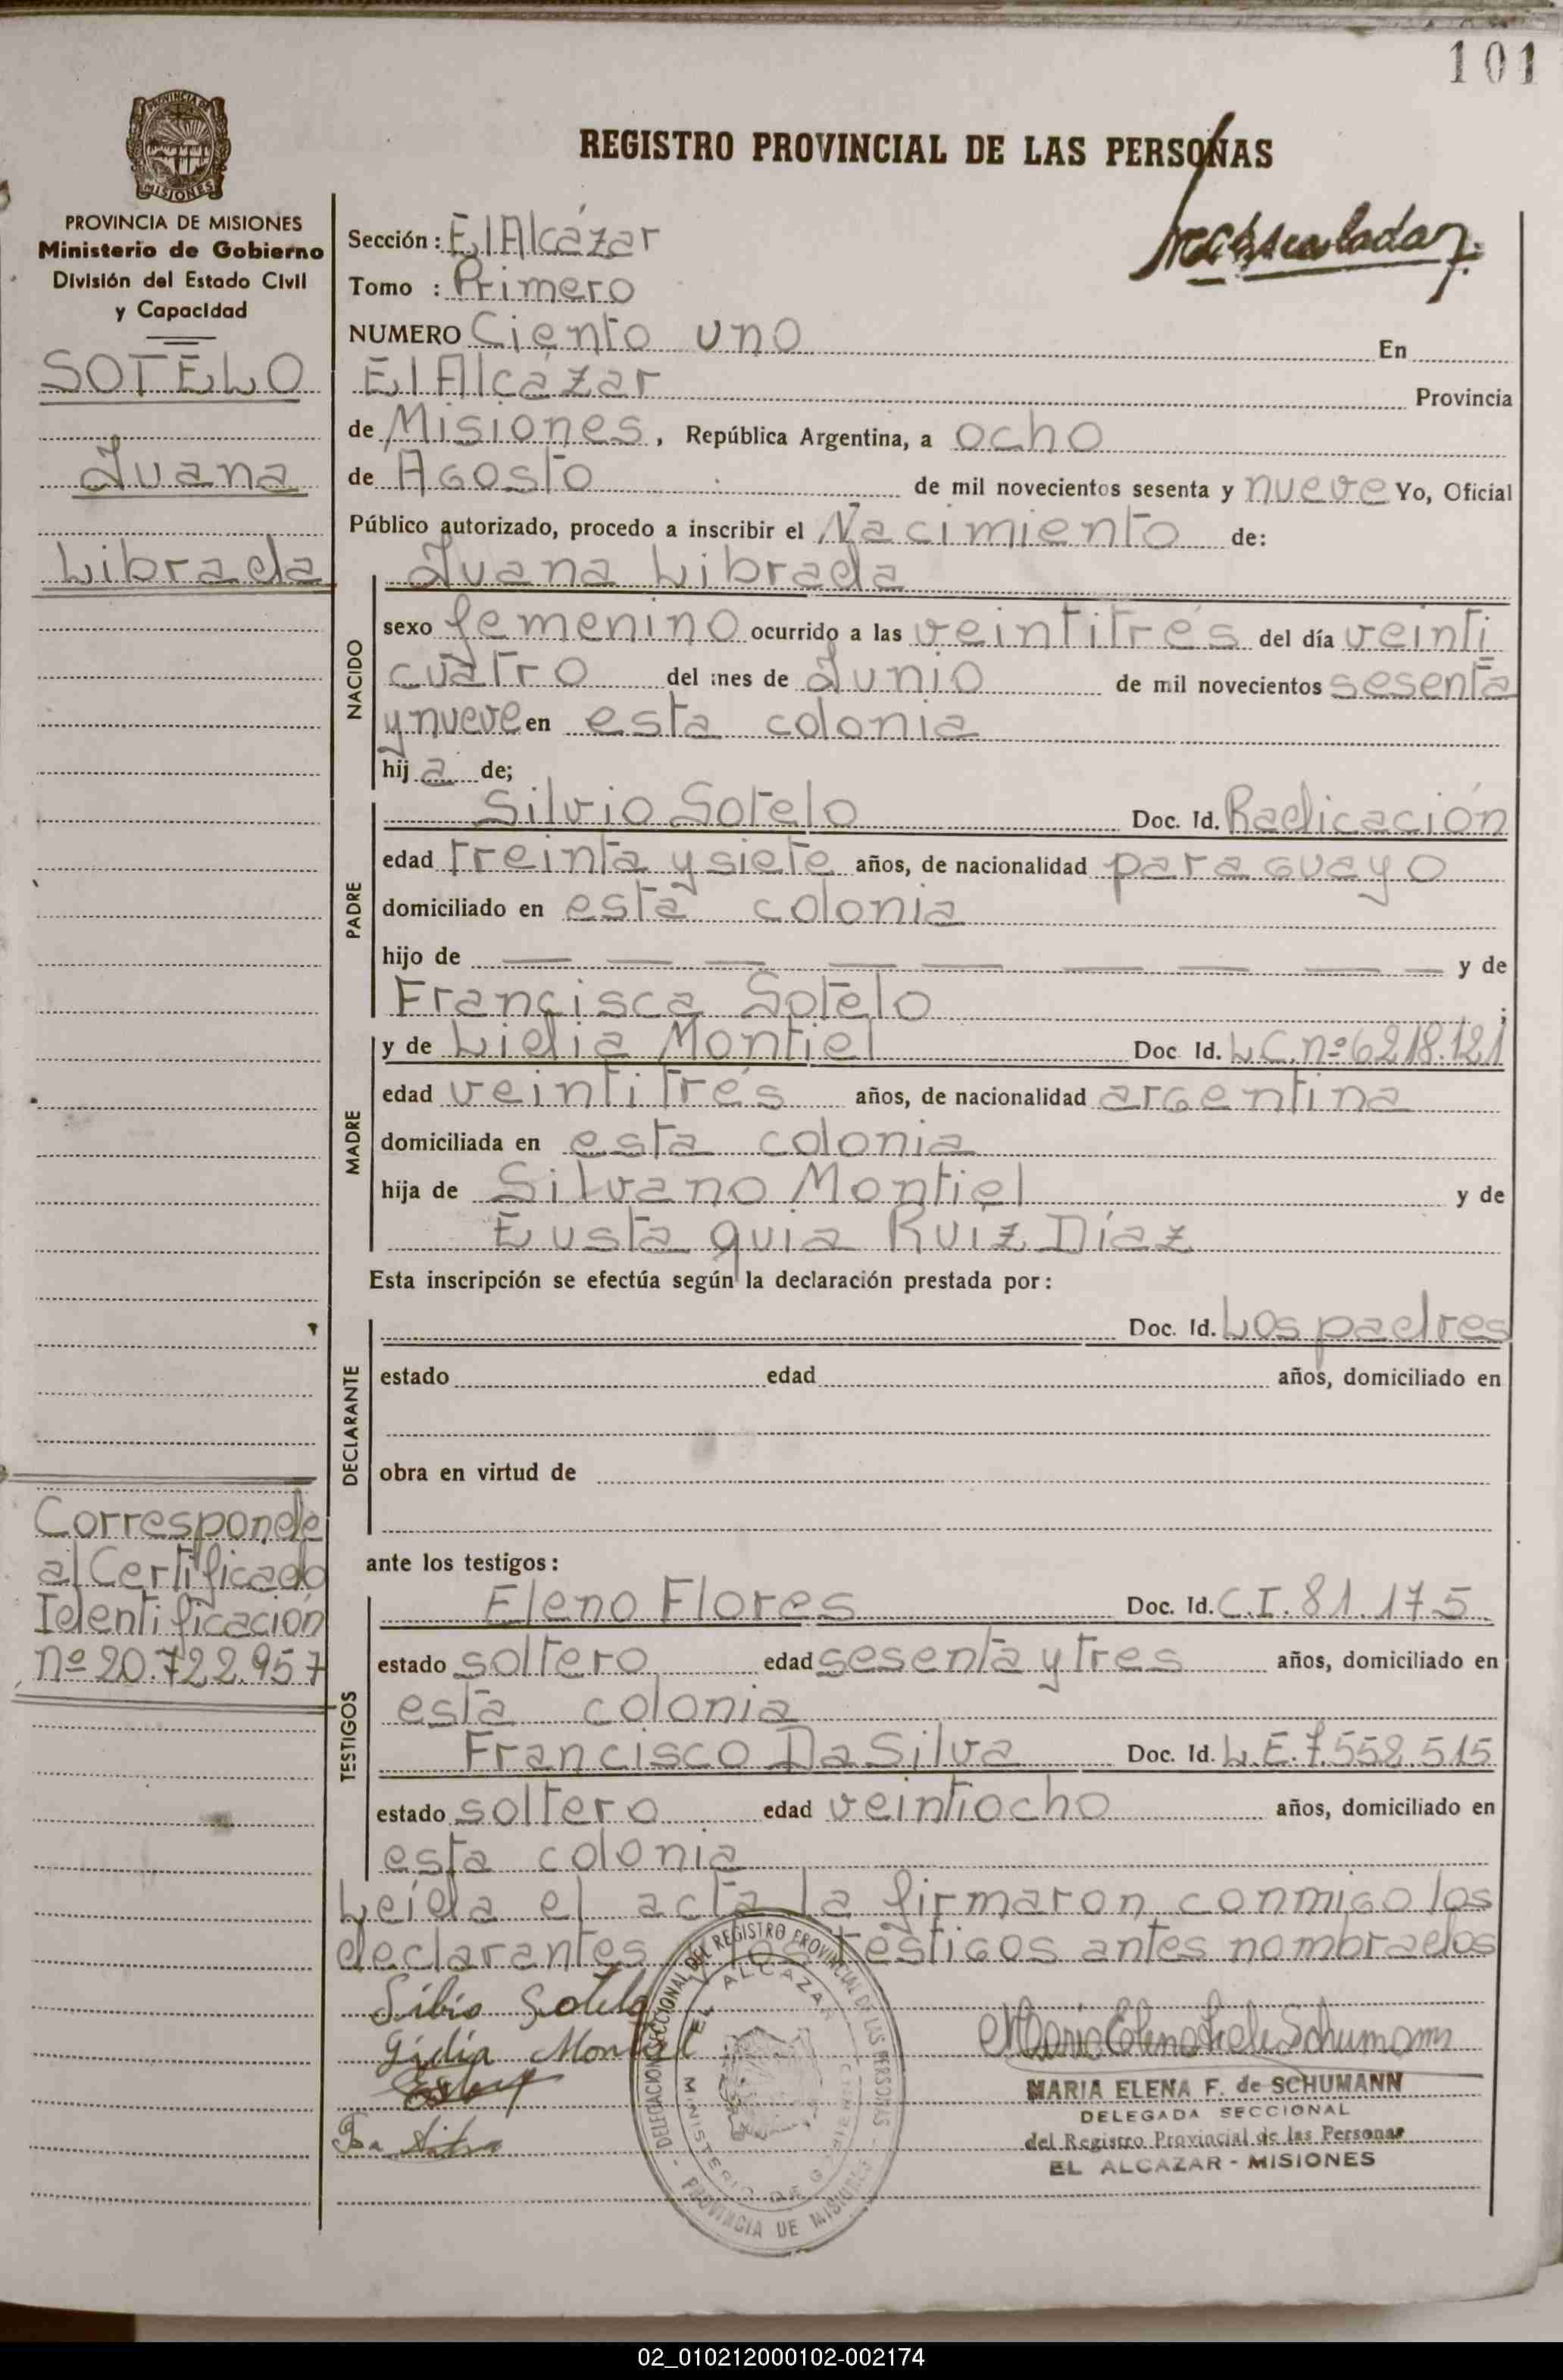 101
PROVINCIA DE MISIONES
PROVINCIA DE MISIONES
Ministerio de Gobierno
División del Estado Civil
y Capacidad
SOTELO
Juana
Librada
Corresponde
al Certificado
Identificación
nº 20.722.957
REGISTRO PROVINCIAL DE LAS PERSONAS
Sección: El Alcázar
Tomo : Primero
NUMERO Ciento uno En
El Alcázar Provincia
de Misiones, República Argentina, a ocho
de Agosto de mil novecientos sesenta y nueve Yo, Oficial
Público autorizado, procedo a inscribir el Nacimiento de:
NACIDO
Juana Librada
sexo femenino ocurrido a las veintitrés del día veinti=
cuatro del mes de Junio de mil novecientos sesenta
y nueve en esta colonia
hij a de;
PADRE
Silvio Sotelo Doc. Id. Radicación
edad treinta y siete años, de nacionalidad paraguayo
domiciliado en esta colonia
hijo de — — — — — — — — — y de
Francisca Sotelo ;
MADRE
y de Lidia Montiel Doc Id. L.C. nº 6218.121
edad veintitrés años, de nacionalidad argentina
domiciliada en esta colonia
hija de Silvano Montiel y de
Eustaquia Ruíz Díaz
Esta inscripción se efectúa según la declaración prestada por:
DECLARANTE
Doc. Id. Los padres
estado edad años, domiciliado en
obra en virtud de
ante los testigos:
TESTIGOS
Eleno Flores Doc. Id. C.I. 81.175
estado soltero edad sesenta y tres años, domiciliado en
esta colonia
Francisco Da Silva Doc. Id. L.E. 7.558.515
estado soltero edad veintiocho años, domiciliado en
esta colonia
Leída el acta la firmaron conmigo los
declarantes y los testigos antes nombrados
Silbio Sotelo
Lidia Montiel
DELEGACION SECCIONAL DEL REGISTRO PROVINCIAL DE LAS PERSONAS
EL ALCAZAR
MINISTERIO DE GOBIERNO
PROVINCIA DE MISIONES
MARIA ELENA F. de SCHUMANN
DELEGADA SECCIONAL
del Registro Provincial de las Personas
EL ALCAZAR - MISIONES
02_010212000102-002174